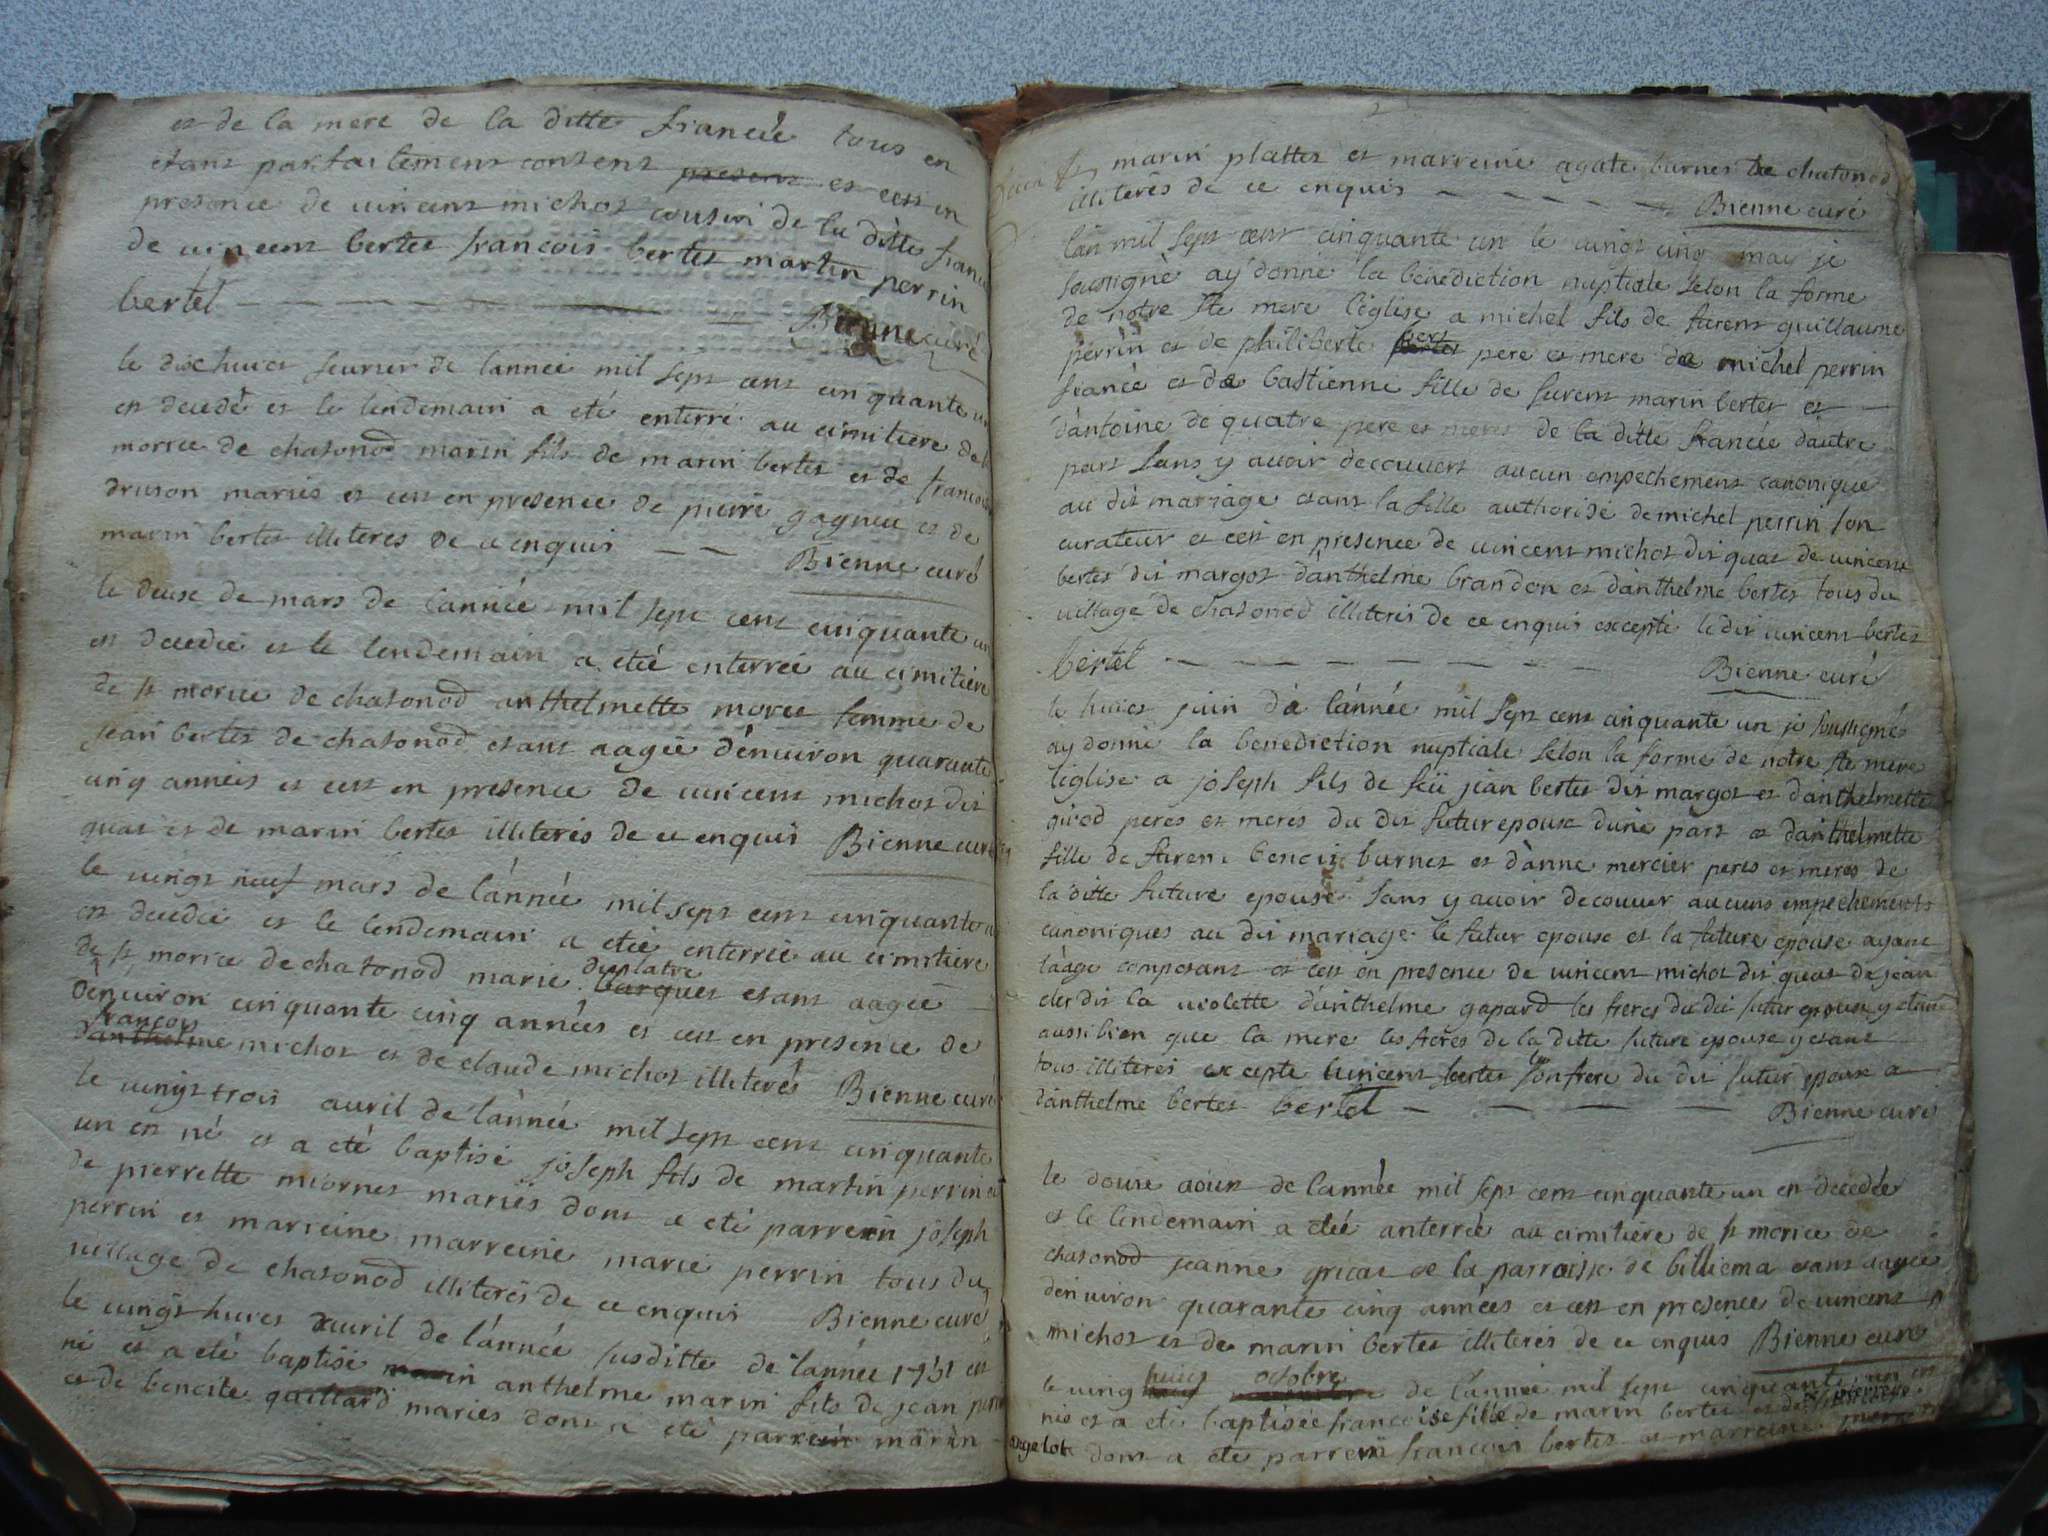 et de la mere de la ditte fiancée tous en
etant parfaitement contens present et cest en
presence de vincent michot cousin de la ditte fiance
de vincent bertet francois bertet martin perrin
bertet
Bienne curé
le dixhuict feuvrier de lannée mil sept cent cinquante un
est decedé et le lendemain a eté enterré au cimitiere de st
morice de chatonod marin fils de marin bertet et de francoise
druton mariés et cest en presence de pierre gagneu et de
marin bertet illiterés de ce enquis Bienne curé
le deuse de mars de l'année mil sept cent cinquante un
est decedée et le lendemain a etée enterrée au cimitiere
de st morice de chatonod anthelmette morce femme de
jean bertet de chatonod etant aagée d'enuiron quarante
cinq annéés et cest en presence de vincent michot dit
quat et de marin bertet illiterés de ce enquis Bienne curé
le vingt neuf mars de l'année mil sept cent cinquante un
est decedée et le lendemain a etée enterrée au cimitiere
duplatre
de st morice de chatonod marie etant aagée
d'enuiron cinquante cinq années et cest en presence de
francois
danthelme michot et de claude michot illiterés Bienne curé
le vingt trois auril de l'année mil sept cent cinquante
un est né et a eté baptisé joseph fils de martin perrin et
de pierrette miornet mariés dont a eté parrein joseph
perrin et marreine marreine marie perrin tous du
village de chatonod illiterés de ce enquis Bienne curé
le vingt huict auril de l'année susditte de l'année 1751 est
né et a eté baptisé marin anthelme marin fils de jean perrin
et de benoite gaillard mariés dont a eté parrein marin
marin plattet et marreine agate burnet de chatonod
illiterés de ce enquis Bienne curé
l'an mil sept cent cinquante un le vingt cinq may je
soussigné ay donné la bénédiction nuptiale selon la forme
de notre ste mere l'église a michel fils de furent guillaume
bert
perrin et de philiberte bertet pere et mere de michel perrin
fiancé et de bastienne fille de furent marin bertet et
d'antoine de quatre pere et meres de la ditte fiancée d'autre
part sans y auoir decouuert aucun empechement canonique
au dit mariage etant la fille authorisé de michel perrin son
curateur et cest en presence de vincent michot dit quat de vincent
bertet dit margot d'anthelme brandon et d'anthelme bertet tous du
village de chatonod illiterés de ce enquis excepté le dit vincent bertet
bertet Bienne curé
le huict juin de l'année mil sept cent cinquante un je soussigné
ay donné la benediction nuptiale selon la forme de notre ste mere
l'église a joseph fils de feü jean bertet dit margot et d'anthelmette
giro'd peres et meres du dit futur epoux d'une part et d'anthelmette
fille de furent benoit burnet et d'anne mercier peres et meres de
la ditte future epouse sans y auoir decouuer aucuns empechements
canoniques au dit mariage le futur epoux et la future epouse ayant
l'aage composant et cest en presence de vincent michot dit quat de jean
cler dit la violette d'anthelme gapard les freres du dit futur epoux y etant
aussi bien que la mere les freres de la ditte future epouse y etant
tous illiterés excepte vincent bertet son frere du dit futur epoux et
d'anthelme bertet bertet Bienne curé
le douse aoust de l'année mil sept cent cinquante un est decedée
et le lendemain a etée anterrée au cimitiere de st morice de
chatonod jeanne de la parroisse de billiema etant aagée
d'enuiron quarante cinq années et cest en presence de vincent
michot et de marin bertet illiterés de ce enquis Bienne curé
huict octobre
le vingt de l'année mil sept cinquante un est
née et a eté baptisée francoise fille de marin bertet et de
angelot dont a eté parrein francois bertet et marreine